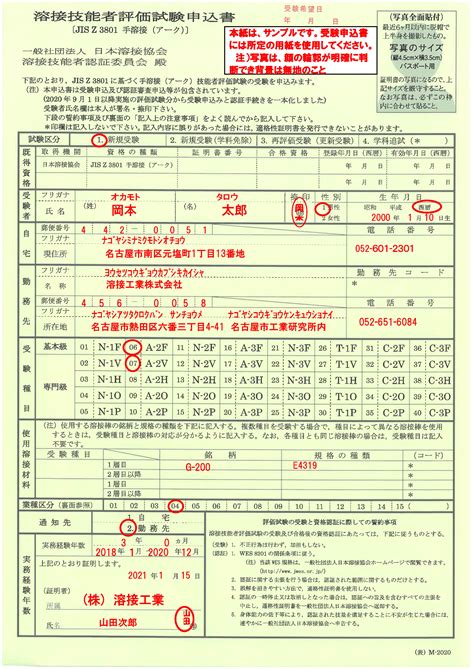 溶接技能者評価試験申込書
〔JIS Z 3801 手溶接（アーク）〕
一般社団法人 日本溶接協会
溶接技能者認証委員会 殿
受験希望日
年 月 日
本紙は、サンプルです。受験申込書
には所定の用紙を使用してください。
注）写真は、顔の輪郭が明確に判
断でき背景は無地のこと
（写真全面貼付）
最近6ヶ月以内に撮影した
上半身のもの。
写真のサイズ
（縦4.5cm×横3.5cm）
パスポート用
証明書の写真になるので、上
記サイズを厳守すること。
なお写真は、必ずこの枠
内に合わせて貼ること。
下記のとおり、JIS Z 3801に基づく手溶接（アーク）技能者評価試験の受験を申込みます。
（注）本申込書は受験申込及び認証審査申込等が含まれています。
（2020年9月1日以降実施の評価試験分から受験申込みと認証手続きを一本化しました）
受験者氏名欄は本人が署名・捺印下さい。
下段の誓約事項及び裏面の「記入上の注意事項」をよく読んでから記入して下さい。
＊印欄は記入しないで下さい。記入内容に誤りがあった場合には、適格性証明書を発行できないことがあります。
試験区分 1. 新規受験 2. 新規受験（学科免除） 3. 再評価受験（更新受験） 4. 学科追試（＊）
既得資格 取得機関 資格の種類 証明書番号 合格資格 登録年月日（西暦） 有効年月日（西暦）
日本溶接協会 JIS Z 3801 手溶接（アーク） 年 月 日 年 月 日
受験者 フリガナ （姓） オカモト （名） タロウ 捺印 性別 生年月日
氏名 岡本 太郎 岡本 1 男性 2 女性 昭和 平成 西暦
2000 年 1 月 10 日生
自宅 郵便番号 442-0051 電話番号
フリガナ ナゴヤシミナミクモトシオチョウ
現住所 名古屋市南区元塩町1丁目13番地 052-601-2301
勤務先 フリガナ ヨウセツコウギョウカブシキカイシャ 勤務先コード
名称 溶接工業株式会社 ＊
郵便番号 456-0058 電話番号
フリガナ ナゴヤシアツタクロクバン サンチョウメ ナゴヤシコウギョウケンキュウショナイ
所在地 名古屋市熱田区六番三丁目4-41 名古屋市工業研究所内 052-651-6084
受験種目
基本級 01 N-1F 06 A-2F 11 A-3F 16 N-2F 21 N-3F 26 T-1F 31 C-2F 36 C-3F
専門級 02 N-1V 07 A-2V 12 A-3V 17 N-2V 22 N-3V 27 T-1V 32 C-2V 37 C-3V
03 N-1H 08 A-2H 13 A-3H 18 N-2H 23 N-3H 28 T-1H 33 C-2H 38 C-3H
04 N-1O 09 A-2O 14 A-3O 19 N-2O 24 N-3O
05 N-1P 10 A-2P 15 A-3P 20 N-2P 25 N-3P 30 T-1P 35 C-2P 40 C-3P
溶接材料
（注）使用する溶接棒の銘柄と規格の種類を下記に記入する。複数種目を受験する場合で、種目によって異なる溶接棒を使用
するときは、受験種目と溶接棒の対応が分かるように記入する。なお、各種目とも同じ溶接棒の場合は、受験種目は記入
不要です。
受験種目 銘柄 規格の種類 （コード）
1層目 G-200 E4319 ＊
2層目以降 ＊
1層目 ＊
2層目以降 ＊
業種区分（裏面参照） 01 02 03 04 05 06 07 08 09 10 11 12 13 14 15
通知先 1. 自宅
2. 勤務先
実務経験年数
実務経験年数 3 年 0 ヵ月
2018年1月～2020年12月
上記のとおり証明します。
2021年1月15日
（証明者）
所属 （株）溶接工業
氏名 山田次郎 山田
評価試験の受験と資格認証に際しての誓約事項
溶接技能者評価試験の受験及び合格後の資格認証にあたっては、下記に従うものとする。
（受験） 1. 不正行為は行わず、加担もしない。
（認証） 1. WES 8201の関係条項に従う。
（注）当該WES規格は、一般社団法人日本溶接協会ホームページで閲覧できます。
（http://www.jwes.or.jp/）
2. 認証に関する主張を行う場合は、認証された範囲に関するものだけとする。
3. 誤解を招きやすい方法で、適格性証明書を使用しない。
（表） M-2020